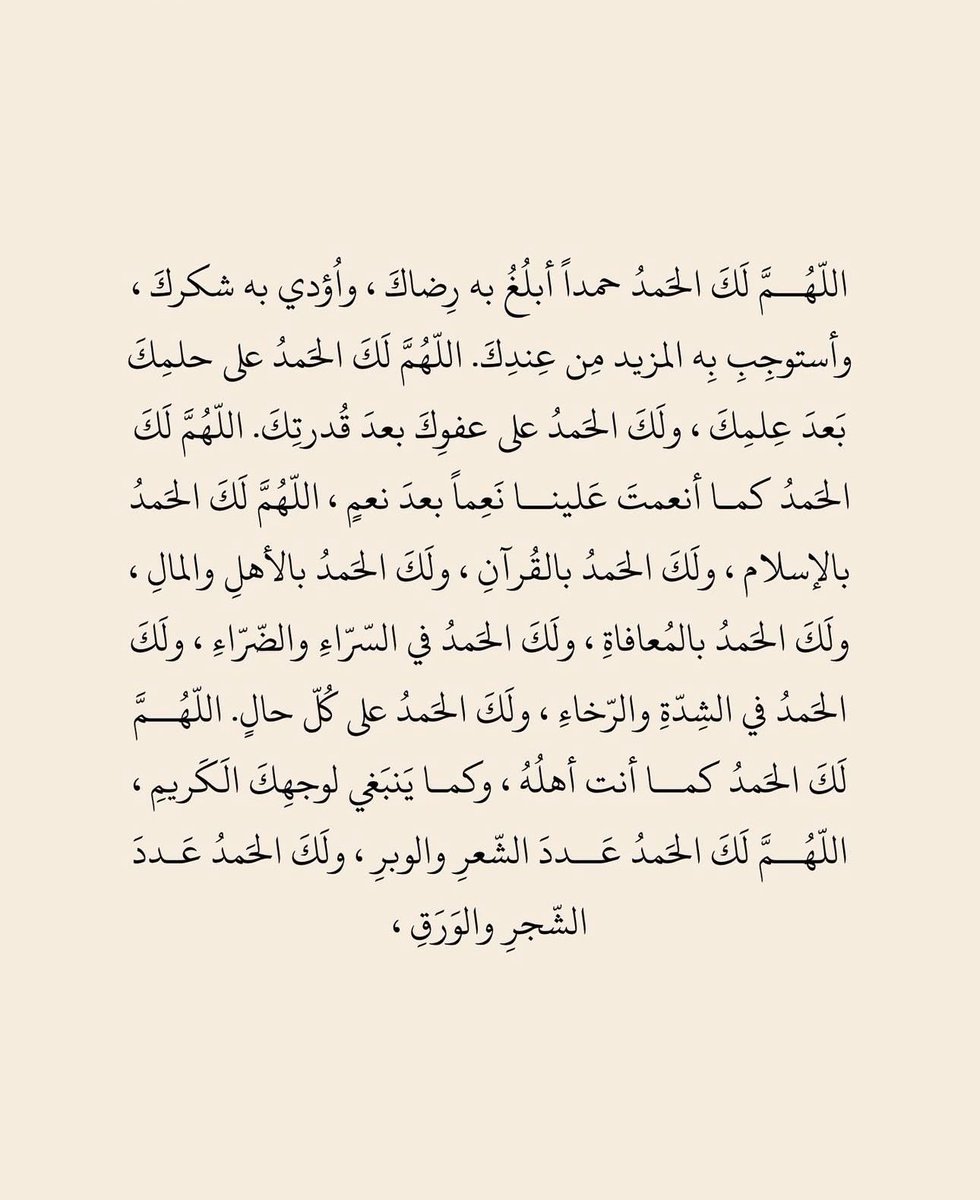 اللّهُـــمَّ لَكَ الحَمدُ حمداً أبلُغُ به رِضاكَ ، واُؤدي به شكركَ ،
وأستوجِبِ بِه المزيد مِن عِندِكَ. اللّهُمَّ لَكَ الحَمدُ على حلمِكَ
بَعدَ عِلمِكَ ، ولَكَ الحَمدُ على عفوِكَ بعدَ قُدرتِكَ. اللّهُمَّ لَكَ
الحَمدُ كمـا أنعمتَ عَلينــا نَعِماً بعدَ نعمٍ ، اللّهُمَّ لَكَ الحَمدُ
بالإسلام ، ولَكَ الحَمدُ بالقُرآنِ ، ولَكَ الحَمدُ بالأهلِ والمالِ ،
ولَكَ الحَمدُ بالمُعافاةِ ، ولَكَ الحَمدُ في السّرّاءِ والضّرّاءِ ، ولَكَ
الحَمدُ في الشِدّةِ والرّخاءِ ، ولَكَ الحَمدُ على كُلّ حالٍ. اللّهُـــمَّ
لَكَ الحَمدُ كمـــا أنت أهلُهُ ، وكمـا يَنبَغي لوجهِكَ الَكَريمِ ،
اللّهُـــمَّ لَكَ الحَمدُ عَـــددَ الشّعرِ والوبرِ ، ولَكَ الحَمدُ عَــددَ
الشّجرِ والوَرَقِ ،